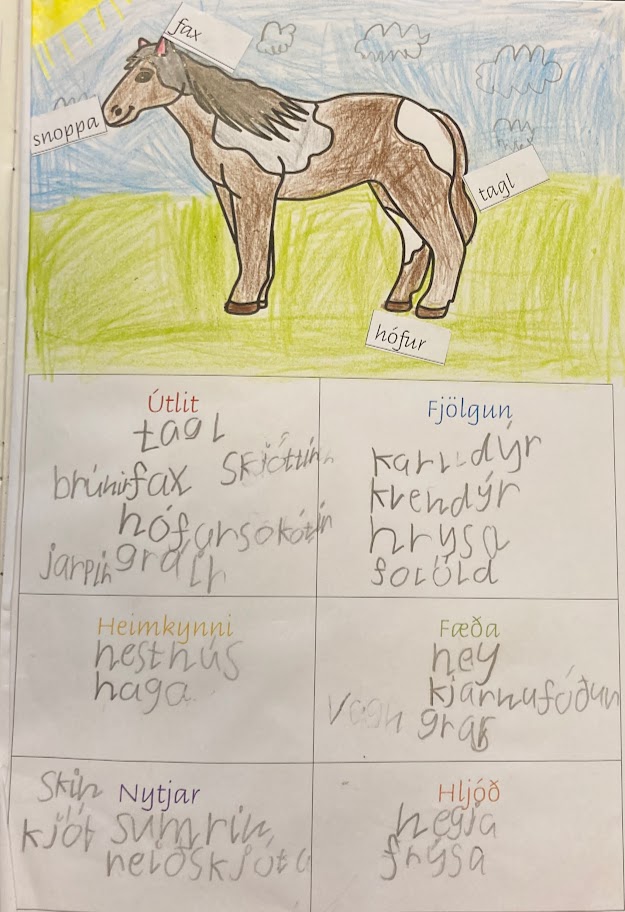 fax
snoppa
tagl
hófur
Útlit
tagl
skjóttir
brúnir fax
hófur
jarpir gráir
Fjölgun
karldýr
kvendýr
hrysa
folöld
Heimkynni
hesthús
haga
Fæða
hey
kjarnufóður
Vagn gras
Skin Nytjar
kjöt sumrin
reiðskjóta
Hljóð
hegja
frýsa